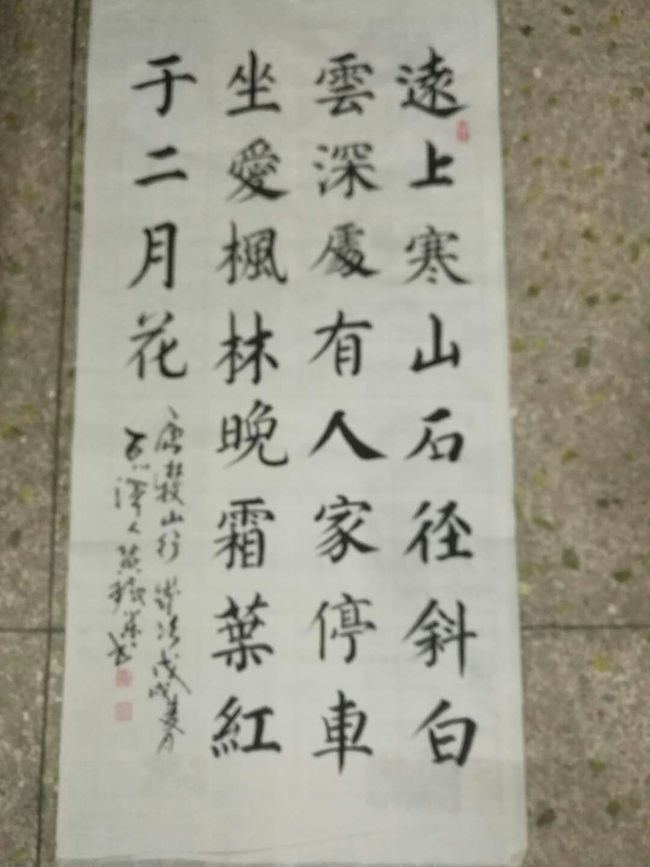 遠上寒山石径斜白
雲深處有人家停車
坐愛楓林晚霜葉紅
于二月花
唐杜牧山行 歲次戊戌春月